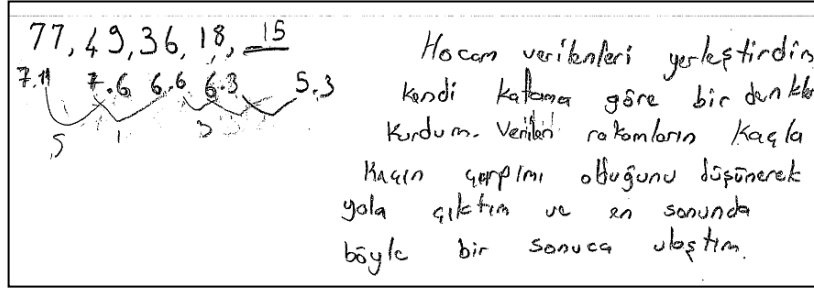 77, 49, 36, 18, 15
7.11 7.6 6.6 6.3 5.3
5 1 3
Hocam verilenleri yerleştirdim
kendi kafama göre bir denklem
kurdum. Verilen rakamların kaçla
kaçın çarpımı olduğunu düşünerek
yola çıktım ve en sonunda
böyle bir sonuca ulaştım.